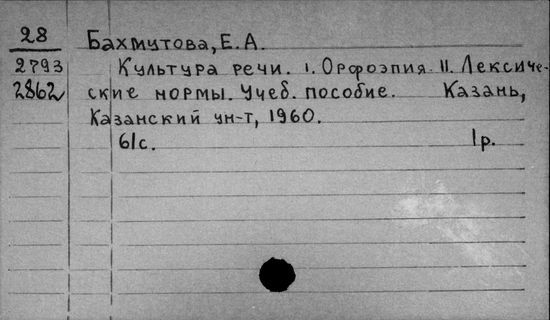 28
Бахмутова, Е. А.
2793
Культура речи. I. Орфоэпия. II. Лексиче-
2862
ские нормы. Учеб. пособие. Казань,
Казанский ун-т, 1960.
61с. 1р.